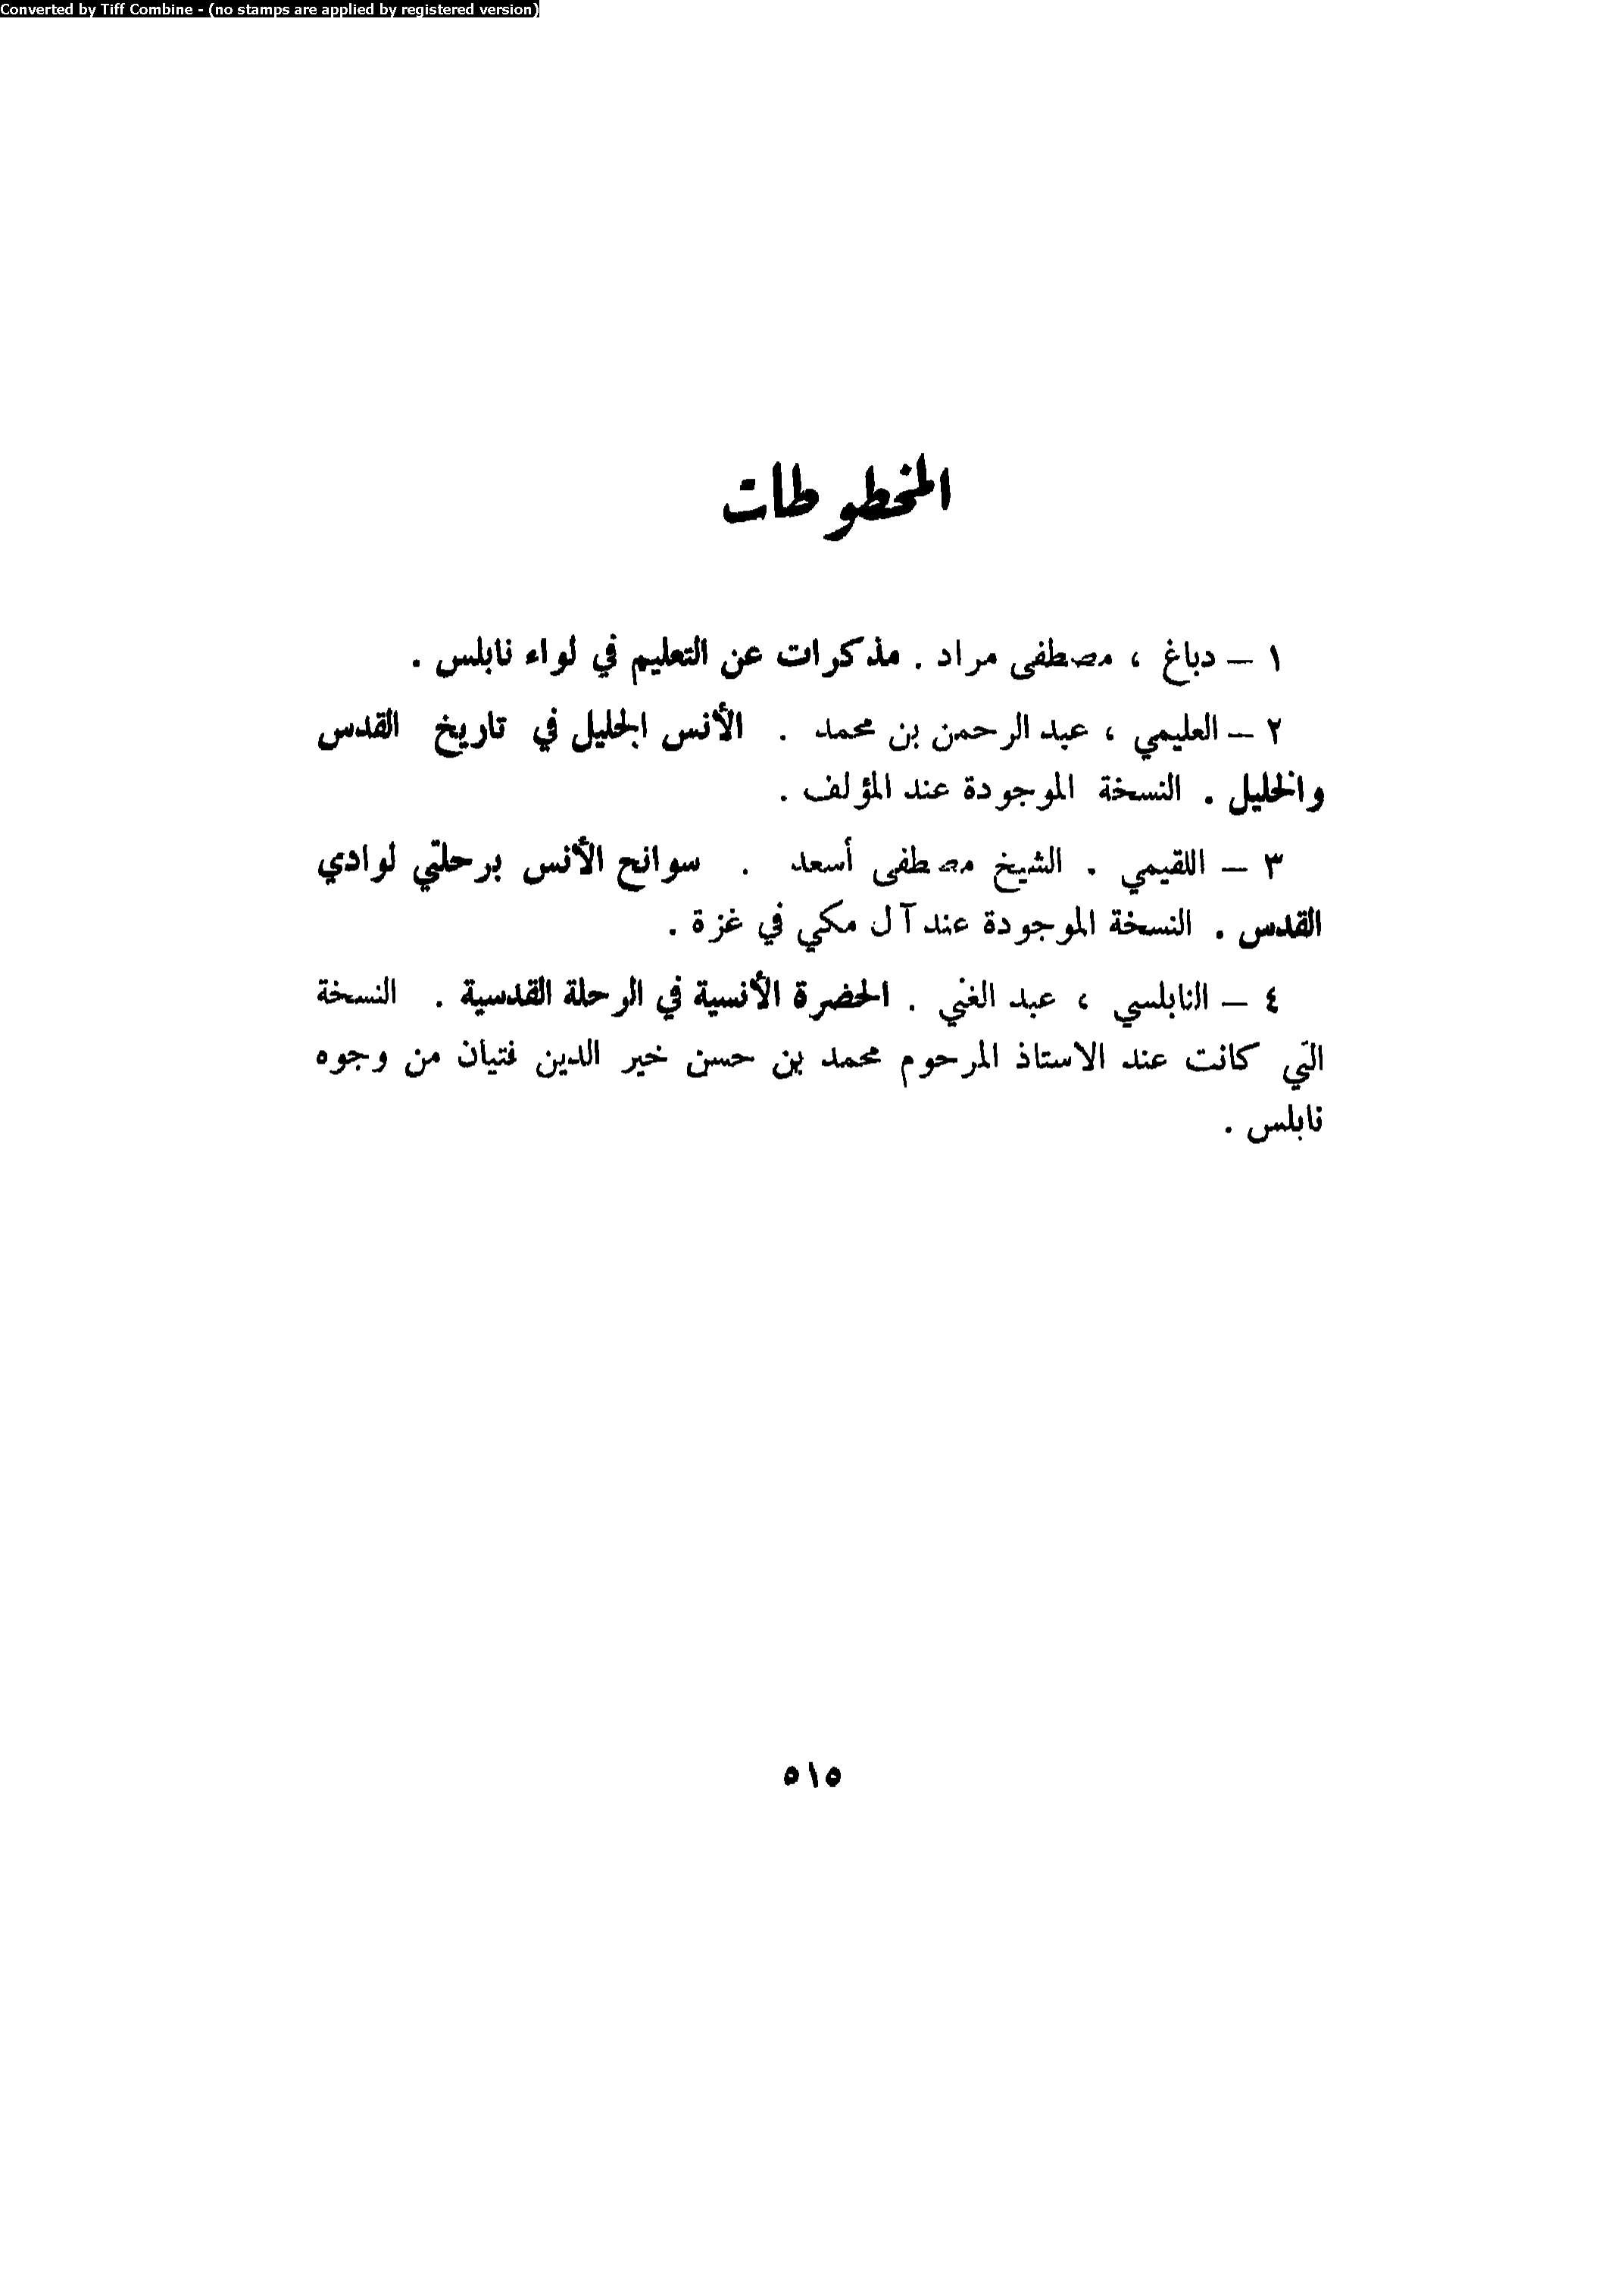 Converted by Tiff Combine - (no stamps are applied by registered version)
المخطوطات
١ – دباغ ، مصطفى مراد . مذكرات عن التعليم في لواء نابلس .
٢ – العليمي ، عبد الرحمن بن محمد . الأنس الجليل في تاريخ القدس
والخليل . النسخة الموجودة عند المؤلف .
٣ – اللقيمي . الشيخ مصطفى أسعد . سوانح الأنس برحلتي لوادي
القدس . النسخة الموجودة عند آل مكي في غزة .
٤ – النابلسي ، عبد الغني . الحضرة الأنسية في الرحلة القدسية . النسخة
التي كانت عند الاستاذ المرحوم محمد بن حسن خير الدين فتيان من وجوه
نابلس .
٥١٥